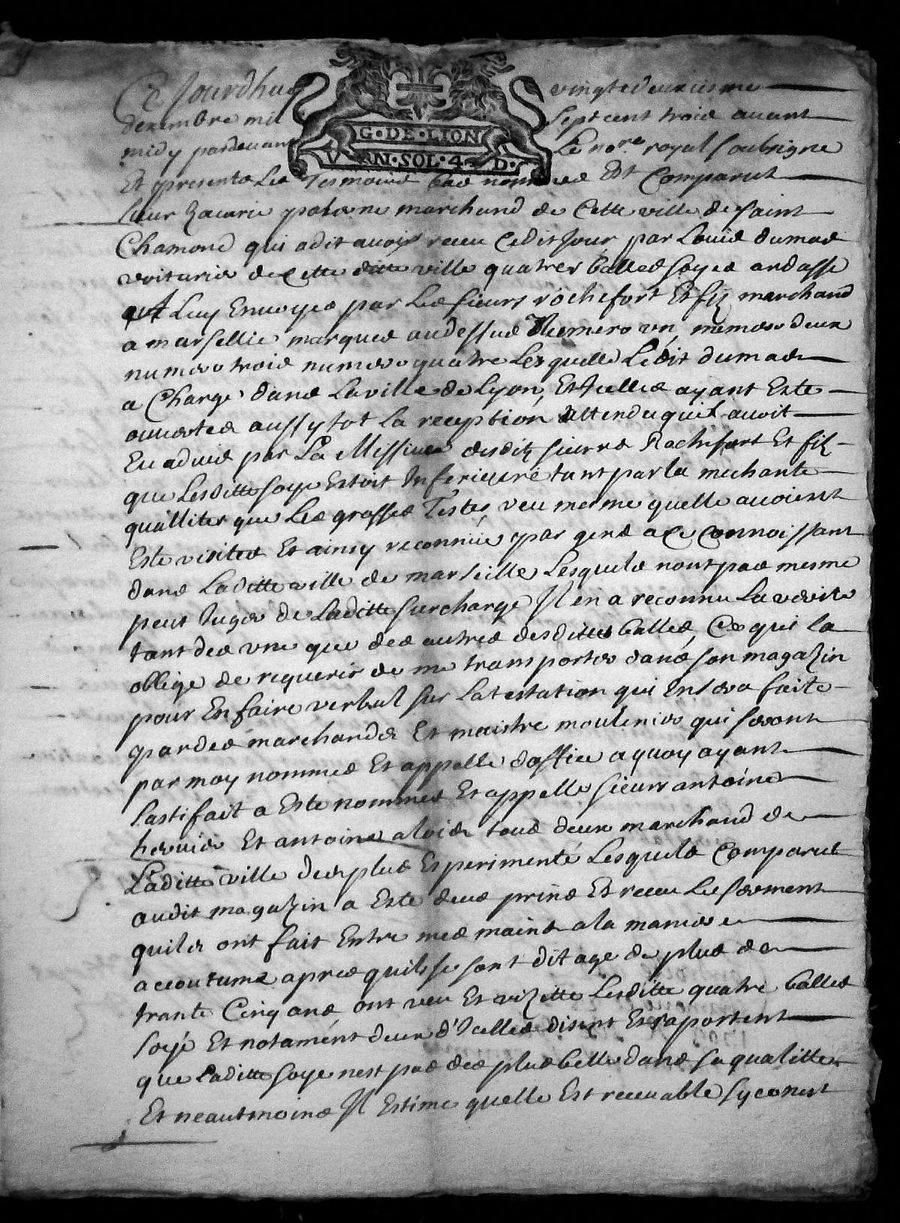 Ce Jourdhuy vingtedeuxiesme
decembre mil Sept cent trois avant
G·DE·LION
midy pardevant Le no.re royal soubsigne
VN·SOL·4·D·
Et presents Les Tesmoins bas nommes Est Comparut
sieur Zacarie palerne marchand de Cette ville de saint
Chamond qui a dit avoir receu Cedit Jour par Louis dumas
voiturie de Cette ditte ville quatres balles soyes ardasse
Luy Envoyes par Les sieurs rochefort Et fis marchand
a marsellie marques au dessus Numero un numero deux
numero trois numero quatre Lesquelle Ledit dumas
a Charge dans La ville de Lyon, Et Icelles ayant Este
ouvertes aussytot La reception attendu quil avoit
Eu advis par La Missive desdits sieurs Rochefort Et fis
que Lesditte soye Estoit Inferieure tant par la mechante
quallites que Les grosses Testes veu mesme quelle avoient
Este visites Et ainsy reconnue par gens a Ce Connoissant
dans Laditte ville de marseille Lesquels nont pas mesme
peut Juger de Laditte surcharge Il en a reconnu La verite
tant des une que des autres desdittes balles, Ce qui la
oblige de requerir de me transporter dans son magazin
pour En faire verbal sur Latestation qui En sera faite
par des marchands Et maistre moulinier qui seront
par moy nommes Et appelle doffice a quoy ayant
sastifait a Este nommes Et appelle sieurs antoine
hervier Et antoine alvier tous deux marchand de
Laditte ville des plus Experimenté Lesquels Comparut
audit magazin a Este deux prins Et receu Le serment
quiles ont fait Entre mes mains a la maniere
accoutume apres quils se sont dit age de plus de
trante Cinq ans ont veu Et vizitte Lesditte quatre balles
soye Et notament deux d'Icelles disent Et raportent
que Laditte soye nest pas des plus belle dans sa quallitte
Et neautmoins Il Estime quelle Est recevable sy ce nest